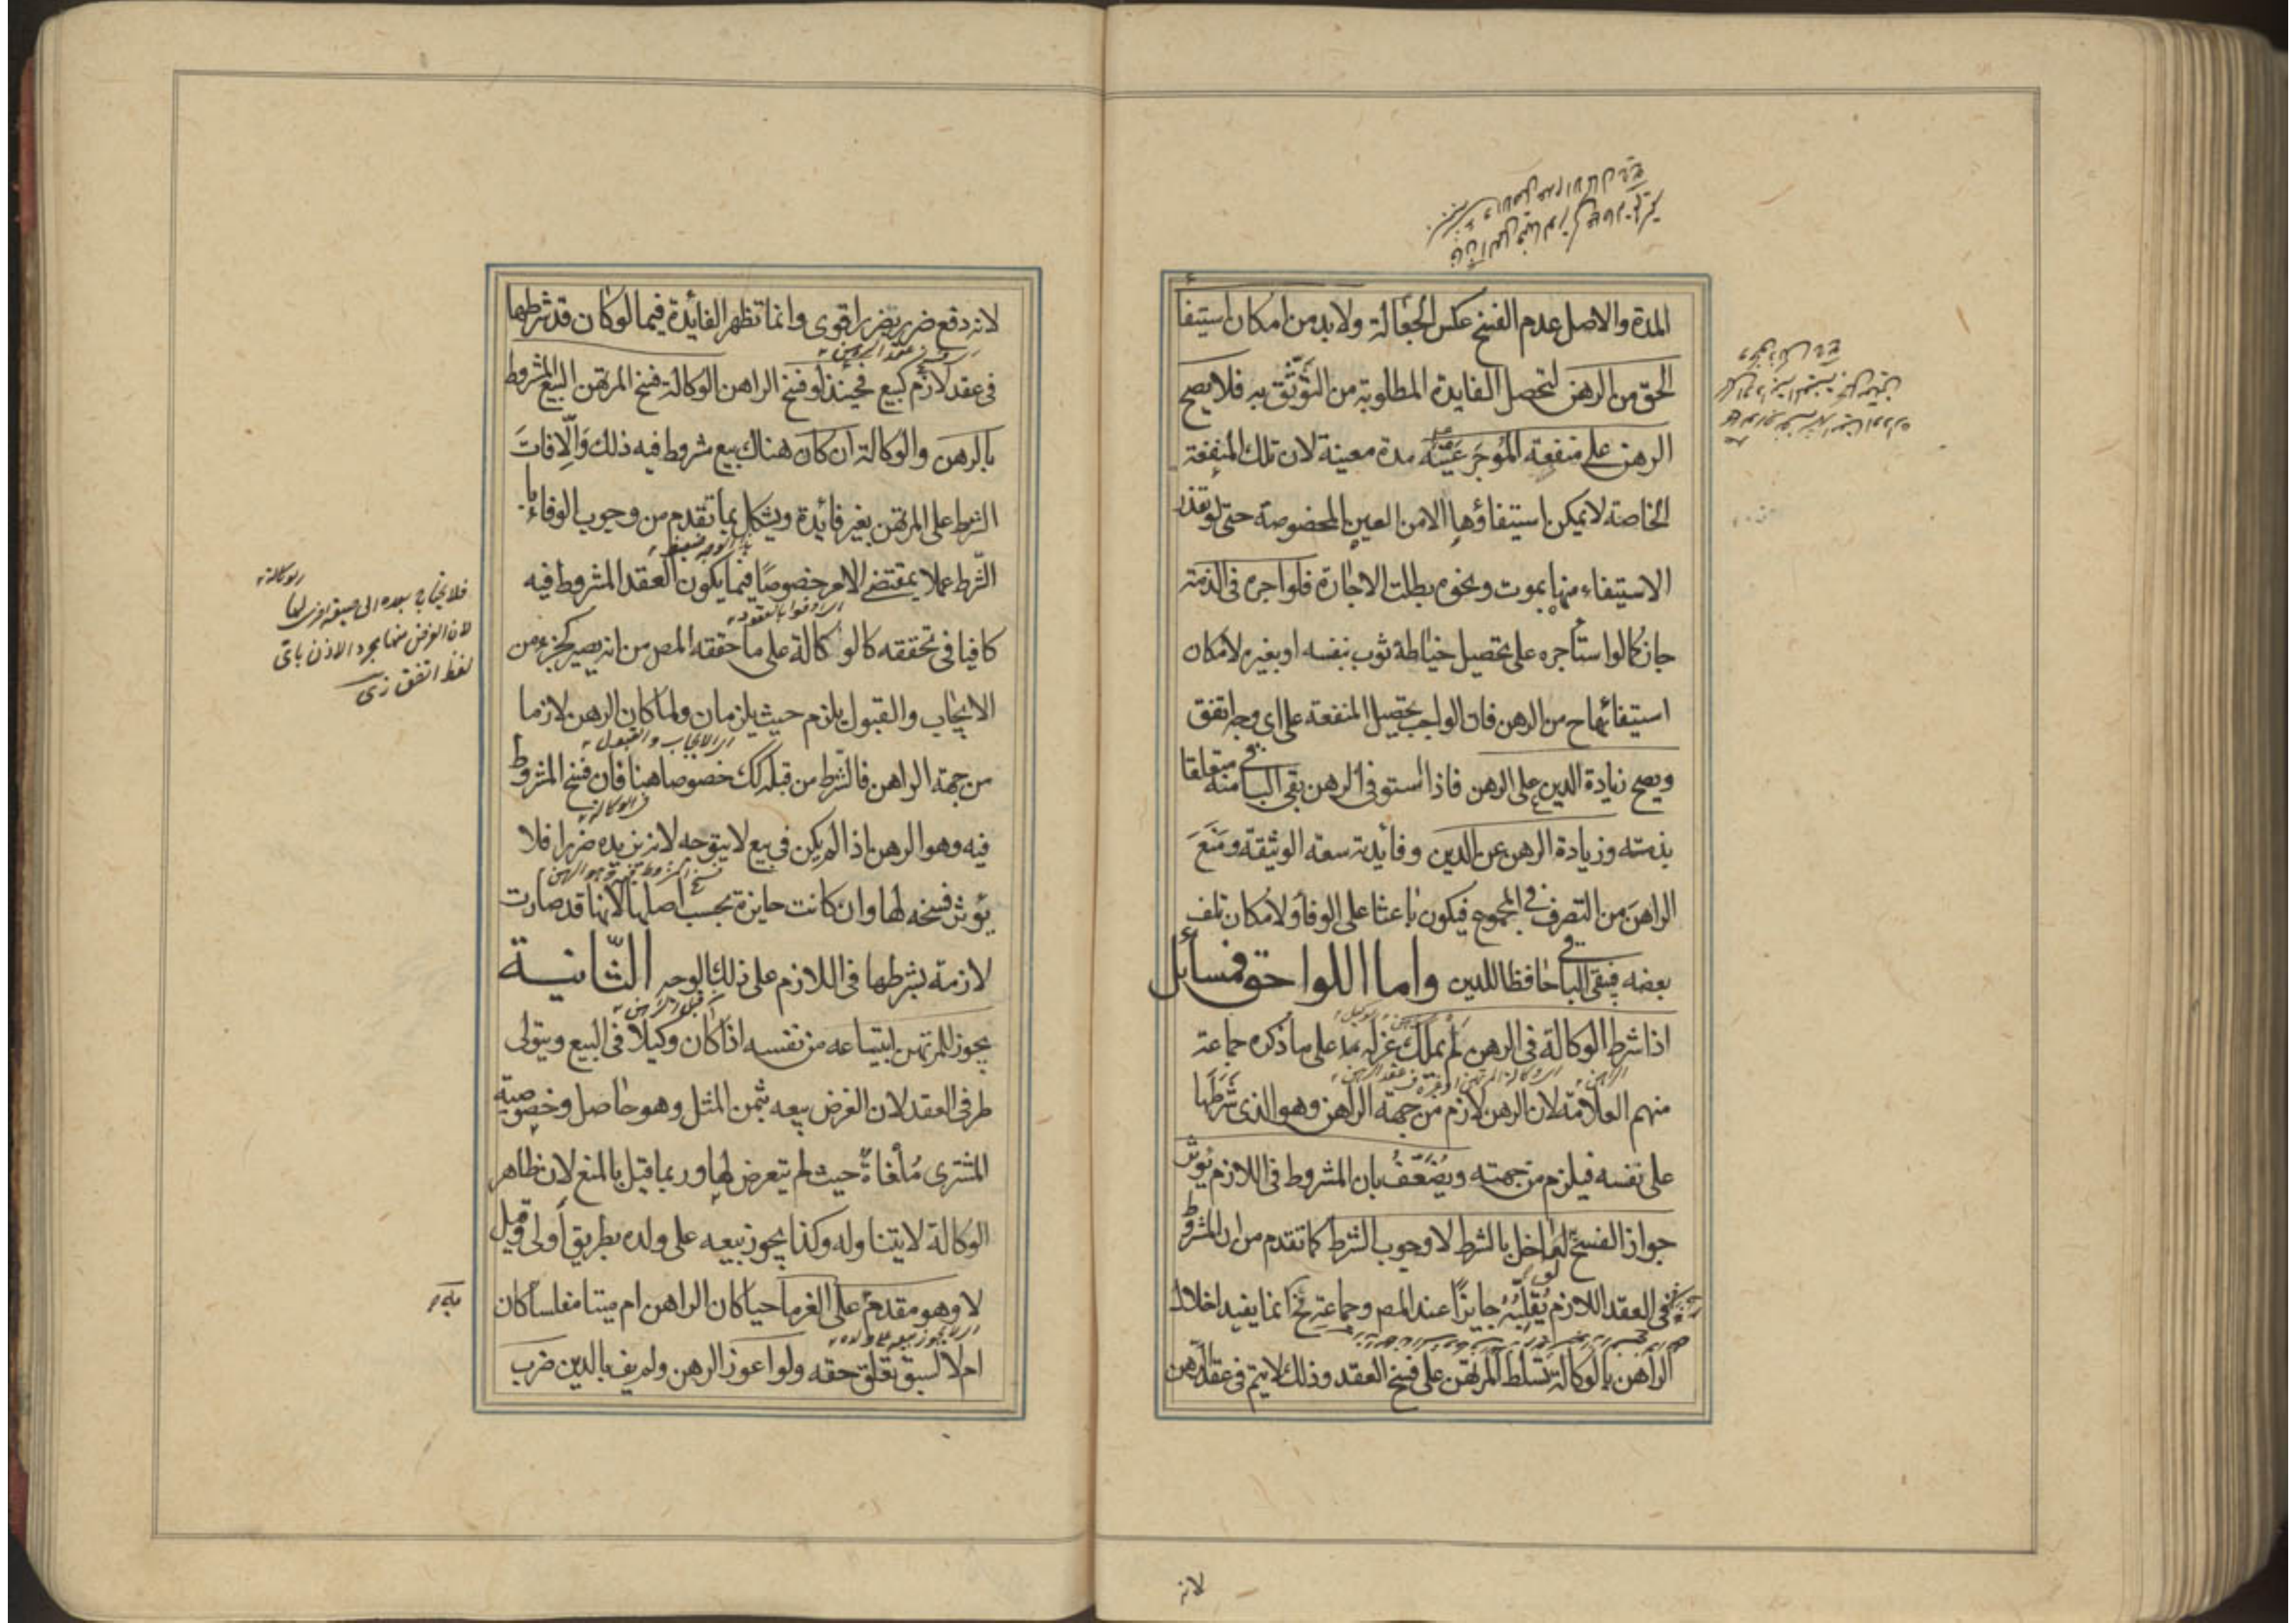 المدة والاصل عدم الفسخ عكس الجعالة ولا بد من امكان استيفأ
الحق من الرهن لتحصل الفايدة المطلوبة من التوثق به فلا يصح
الرهن على منفعة المؤجر عينه مدة معينة لان تلك المنفعة
الخاصة لا يمكن استيفاؤها الا من العين المخصوصة حتى لو تعذر
الاستيفاء منها بموت ونحوه بطلت الاجارة فلو اجره فى الذمة
جاز كما لو استأجره على تحصيل خياطة ثوب بنفسه او بغيره لامكان
استيفائها ح من الرهن فان الواجب تحصيل المنفعة على اى وجه اتفق
ويصح زيادة الدين على الرهن فاذا استوفى الرهن بقى الباقى منه متعلقا
بذمته وزيادة الرهن عن الدين وفائدته سعة الوثيقة ومنع
الراهن من التصرف فى المجموع فيكون باعثا على الوفأ ولامكان تلف
بعضه فيبقى الباقى حافظا للدين واما اللواحق فمسائل
اذا شرط الوكالة فى الرهن لم يملك عزله على ما ذكره جماعة
منهم العلامة لان الرهن لازم من جهة الراهن وهو الذى شرطها
على نفسه فيلزم من جهته ويضعف بان المشروط فى اللازم يؤثر
جواز الفسخ لو اخل بالشرط لا وجوب الشرط كما تقدم من ان المشروط
فى العقد اللازم يقلبه جايزا عند المص وجماعة فح انما يفيد اخلال
الراهن بالوكالة تسلط المرتهن على فسخ العقد وذلك لا يتم فى عقد الرهن
لانه
لانه دفع ضرر بضرر اقوى وانما تظهر الفائدة فيما لو كان قد شرطها
فى عقد لازم كبيع فحينئذ لو فسخ الراهن الوكالة فسخ المرتهن البيع المشروط
بالرهن والوكالة ان كان هناك بيع مشروط فيه ذلك والا فات
الشرط على المرتهن بغير فائدة ويشكل بما تقدم من وجوب الوفاء با
الشرط عملا بمقتضى الامر خصوصا فيما يكون العقد المشروط فيه
اى اوفوا بالعقود
كافيا فى تحققه كالوكالة على ما حققه المص من انه يصير كجزء من
الايجاب والقبول يلزم حيث يلزمان ولما كان الرهن لازما
اى الايجاب والقبول
من جهة الراهن فالشرط من قبله كك خصوصا هنا فان فسخ المشروط
فيه وهو الرهن اذا لم يكن فى بيع لا يتوجه لانه يزيده ضررا فلا
يؤثر فسخه لها وان كانت جايزة بحسب اصلها لانها قد صارت
لازمة بشرطها فى اللازم على ذلك الوجه الثانية
يجوز للمرتهن ابتياعه من نفسه اذا كان وكيلا فى البيع ويتولى
طرفى العقد لان الغرض بيعه بثمن المثل وهو حاصل وخصوصية
المشترى ملغاة حيث لم يتعرض لها وربما قيل بالمنع لان ظاهر
الوكالة لا يتناوله وكذا يجوز بيعه على ولده بطريق أولى وقيل
لا وهو مقدم على الغرما حيا كان الراهن ام ميتا مفلسا كان
اى لا يجوز بيعه على ولده
ام لا لسبق تعلق حقه ولو اعوز الرهن ولم يف بالدين ضرب
فلا يحتاج بعده الى صيغة اخرى لها
لان الغرض منها مجرد الاذن باى
لفظ اتفق